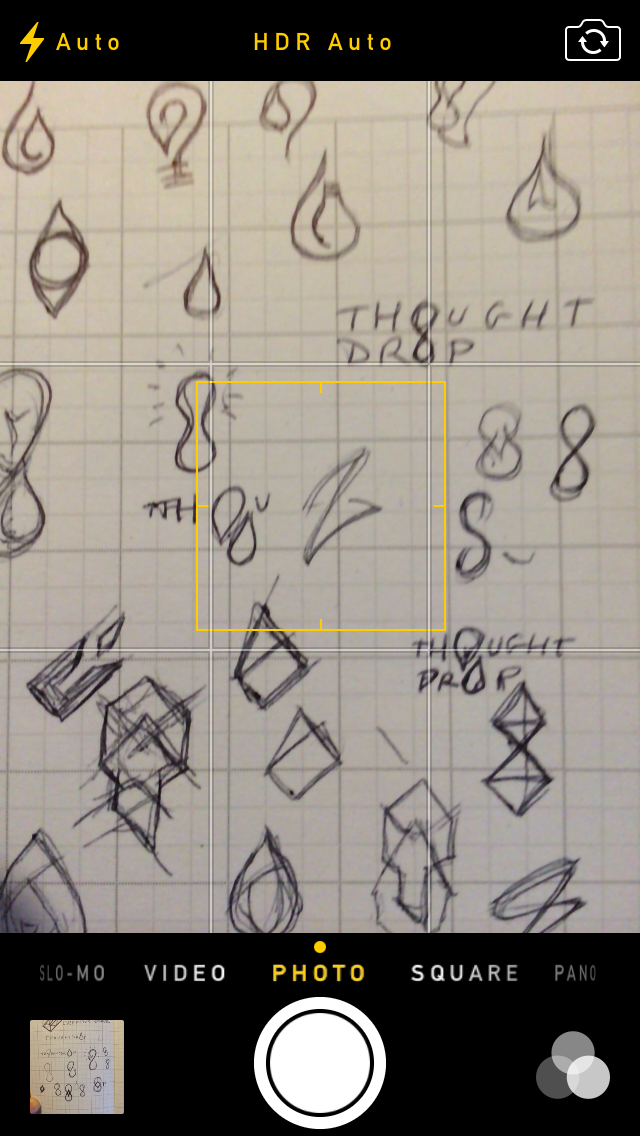 Auto HDR Auto
THOUGHT
DROP
THOU
THOUGHT
DROP
SLO-MO VIDEO PHOTO SQUARE PANO